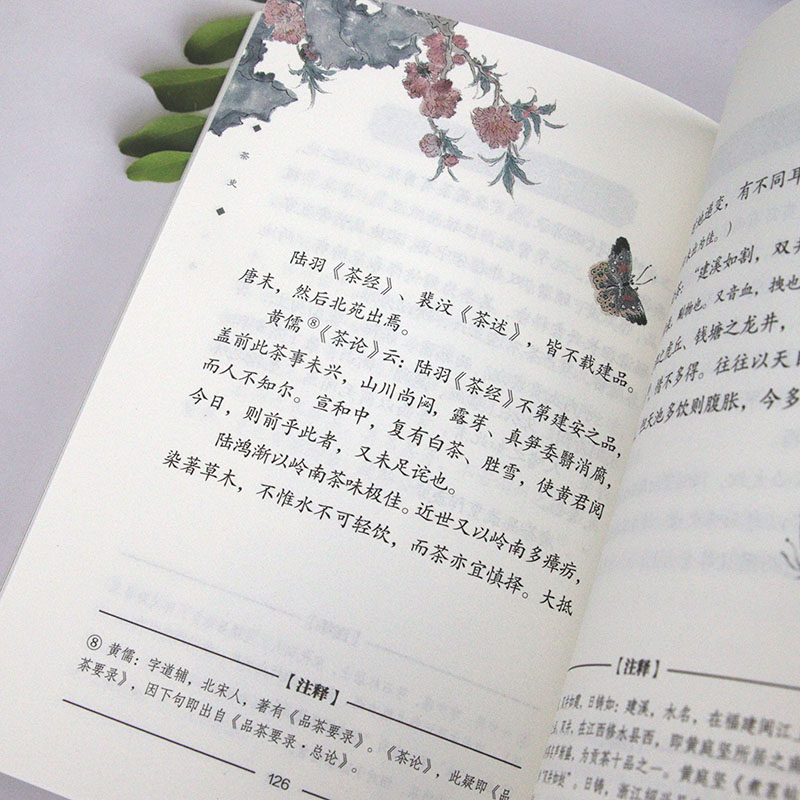 茶史
陆羽《茶经》、裴汶《茶述》，皆不载建品。
唐末，然后北苑出焉。
黄儒⑧《茶论》云：陆羽《茶经》不第建安之品，
盖前此茶事未兴，山川尚闷，露芽、真笋委翳消腐，
而人不知尔。宣和中，复有白茶、胜雪，使黄君阅
今日，则前乎此者，又未足诧也。
陆鸿渐以岭南茶味极佳。近世又以岭南多瘴疠，
染著草木，不惟水不可轻饮，而茶亦宜慎择。大抵
【注释】
⑧ 黄儒：字道辅，北宋人，著有《品茶要录》。《茶论》，此疑即《品
茶要录》，因下句即出自《品茶要录·总论》。
126
递变，有不同耳
"建溪如割，双井
又音血，拽也
虎丘、钱塘之龙井，
惜不多得。往往以天
天池多饮则腹胀，今多
【注释】
日铸如；建溪，水名，在福建闽江上
在江西修水县西，即黄庭坚所居之南
为贡茶十品之一。黄庭坚《煮茗
日铸，浙江绍兴